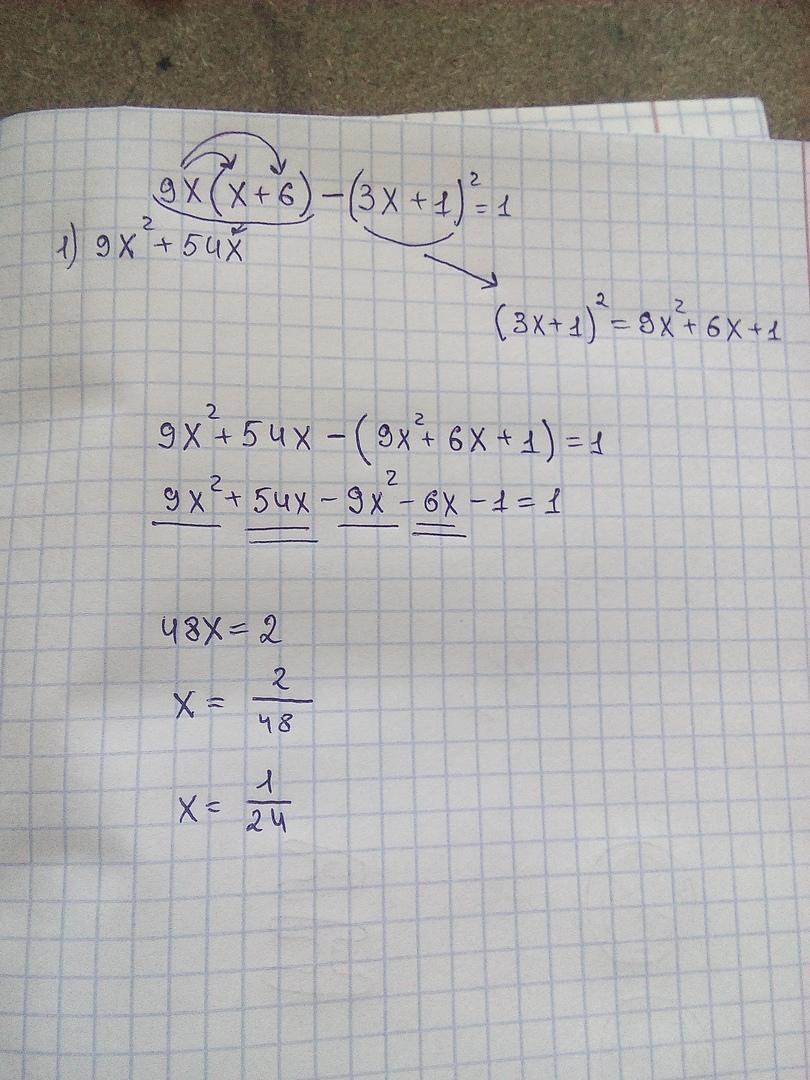 9x(x+6)-(3x+1)²=1
1) 9x²+54x
(3x+1)²=9x²+6x+1
9x²+54x-(9x²+6x+1)=1
9x²+54x-9x²-6x-1=1
48x=2
x= 2/48
x= 1/24